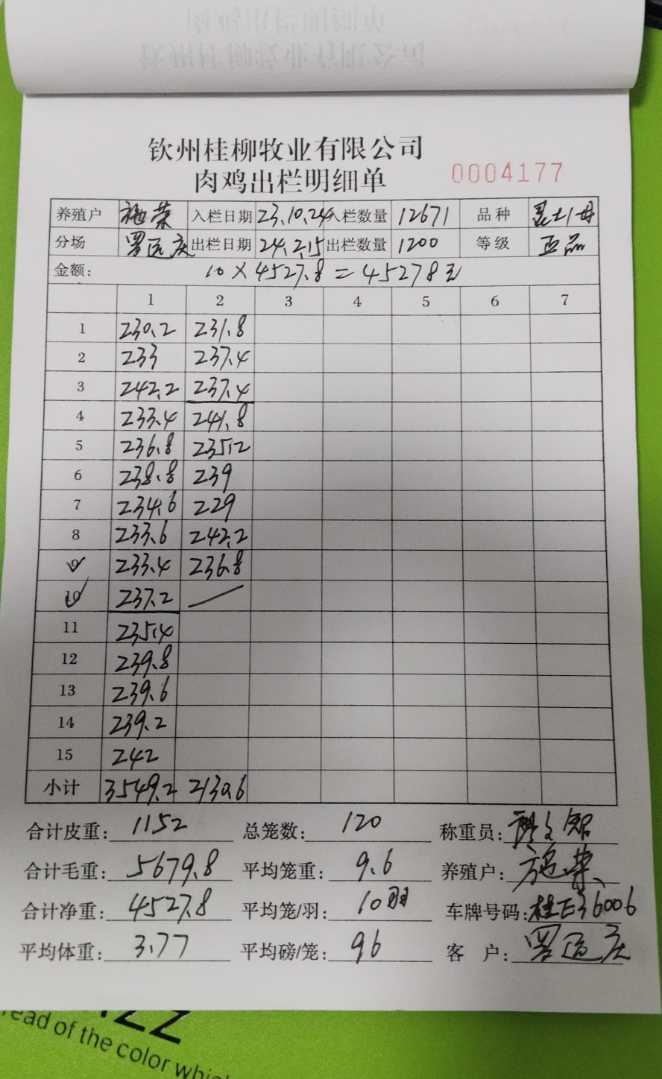 钦州桂柳牧业有限公司
肉鸡出栏明细单 0004177
养殖户 施荣 入栏日期 23.10.24 入栏数量 12671 品种
分场 出栏日期 24.2.15 出栏数量 1200 等级 正品
金额: 10×4527.8=45278元
1 2 3 4 5 6 7
1 230.2 231.8
2 233 237.4
3 242.2 237.4
4 233.4 241.8
5 236.8 235.2
6 238.8 239
7 234.6 229
8 233.6 242.2
9 233.4 236.8
10 237.2
11 235.4
12 239.8
13 239.6
14 239.2
15 242
小计 3549.2 2130.6
合计皮重: 1152 总笼数: 120 称重员:
合计毛重: 5679.8 平均笼重: 9.6 养殖户: 施荣
合计净重: 4527.8 平均笼/羽: 10羽 车牌号码: 桂E36006
平均体重: 3.77 平均磅/笼: 96 客 户:
ZZ
ead of the color whic